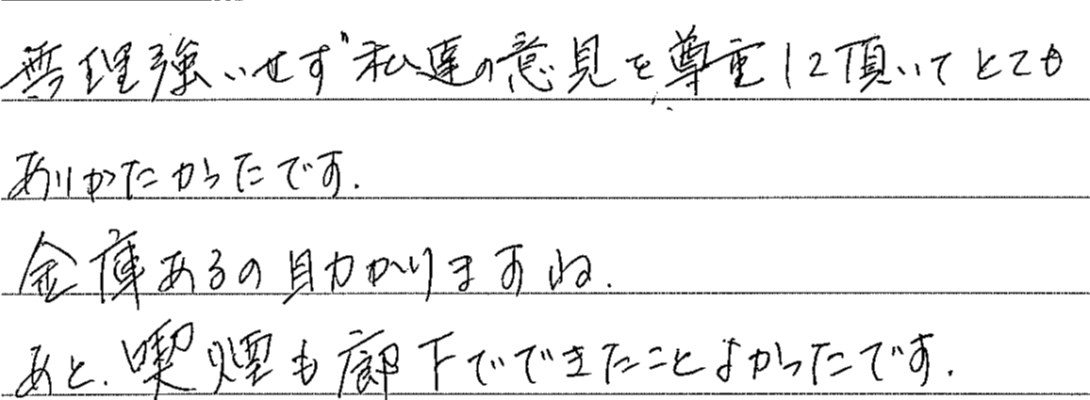 無理強いせず私達の意見を尊重して頂いてとても
ありがたかったです.
金庫あるの助かりますね.
あと.喫煙も廊下でできたことよかったです.